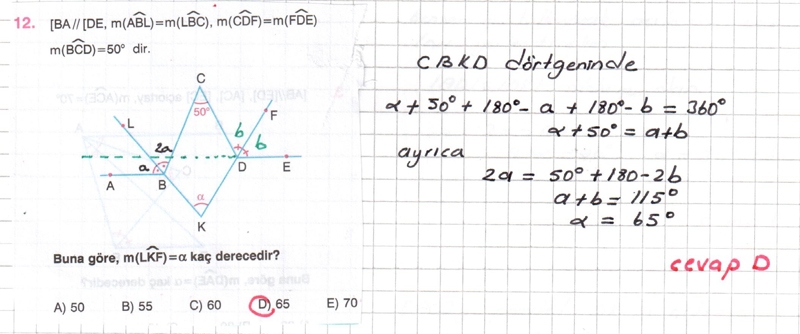 12. [BA // [DE, m(ABL)=m(LBC), m(CDF)=m(FDE)
m(BCD)=50° dir.
C
50°
L
F
b
b
2a
a
A
B
D
E
α
K
Buna göre, m(LKF)=α kaç derecedir?
A) 50 B) 55 C) 60 D) 65 E) 70
CBKD dörtgeninde
α+50°+180°-a+180°-b=360°
α+50°=a+b
ayrıca
2a = 50°+180-2b
a+b=115°
α = 65°
cevap D